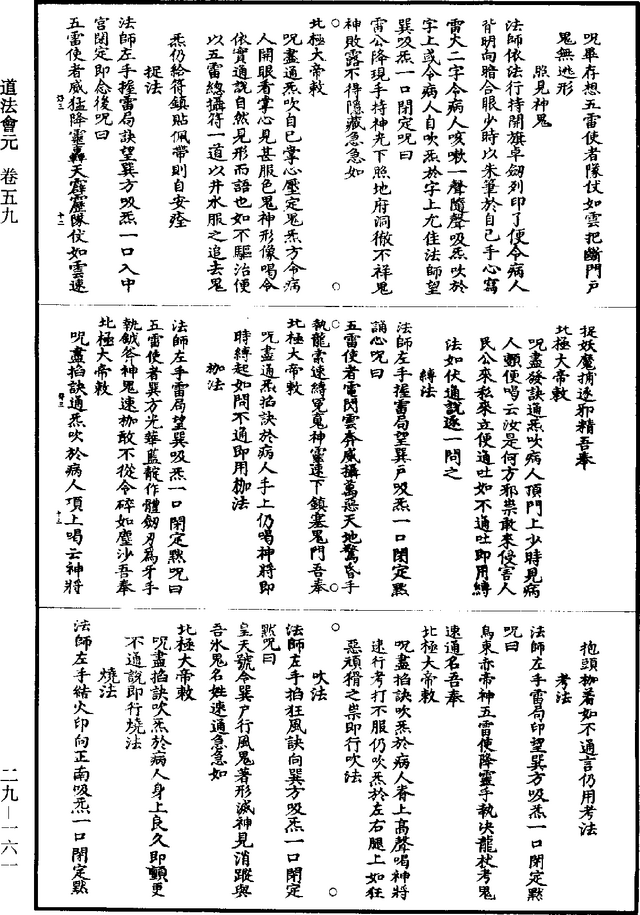 道法會元 卷五九
二九—一六一
咒畢存想五雷使者隊仗如雲把斷門戶
鬼無逃形
照見神鬼
法師依法行持開旗卓劒列印了便令病人
背明向暗合眼少時以朱筆於自己手心寫
雷火二字令病人咳嗽一聲隨聲吸炁吹於
字上或令病人自吹炁於字上尤佳法師望
巽吸炁一口閉定咒曰
雷公降現手持神光下照地府洞徹不祥鬼
神敗露不得隱藏急急如
北極大帝敕
咒盡通炁吹自己掌心壓定鬼炁方令病
人開眼看掌心見甚服色鬼神形像喝令
依實通說自然見形而語也如不驅治便
以五雷總攝符一道以井水服之追去鬼
炁仍給符鎮貼佩帶則自安痊
捉法
法師左手握雷局訣望巽方吸炁一口入中
宮閉定即念後咒曰
五雷使者威猛降靈轟天霹靂隊仗如雲速
捉妖魔捕逐邪精吾奉
北極大帝敕
咒盡發訣通炁吹病人頂門上少時見病
人顫便喝云汝是何方邪祟敢來侵害人
民公來私來立便通吐如不通吐即用縛
法如伏通說逐一問之
縛法
法師左手握雷局望巽戶吸炁一口閉定默
誦心咒曰
五雷使者電閃雲奔威攝萬惡天地驚昏手
執龍索速縛冤䰟神靈速下鎮塞鬼門吾奉
北極大帝敕
咒盡通炁掐訣於病人手上仍喝神將即
時縛起如問不通即用枷法
枷法
法師左手雷局望巽吸炁一口閉定默咒曰
五雷使者巽方光華藍靛作體劒刃爲牙手
執鉞斧神鬼速枷敢不從令碎如塵沙吾奉
北極大帝敕
咒盡掐訣通炁吹於病人頂上喝云神將
抱頭枷著如不通言仍用考法
考法
法師左手雷局印望巽方吸炁一口閉定默
咒曰
烏東赤帝神五雷使降靈手執決龍杖考鬼
速通名吾奉
北極大帝敕
咒盡掐訣吹炁於病人脊上高聲喝神將
速行考打不服仍吹炁於左右腿上如狂
惡頑猾之祟即行吹法
吹法
法師左手掐狂風訣向巽方吸炁一口閉定
默咒曰
皇天號令巽戶行風鬼著形滅神見消蹤與
吾氷鬼名姓速通急急如
北極大帝敕
咒盡掐訣吹炁於病人身上良久即顫更
不通說即行燒法
燒法
法師左手結火印向正南吸炁一口閉定默